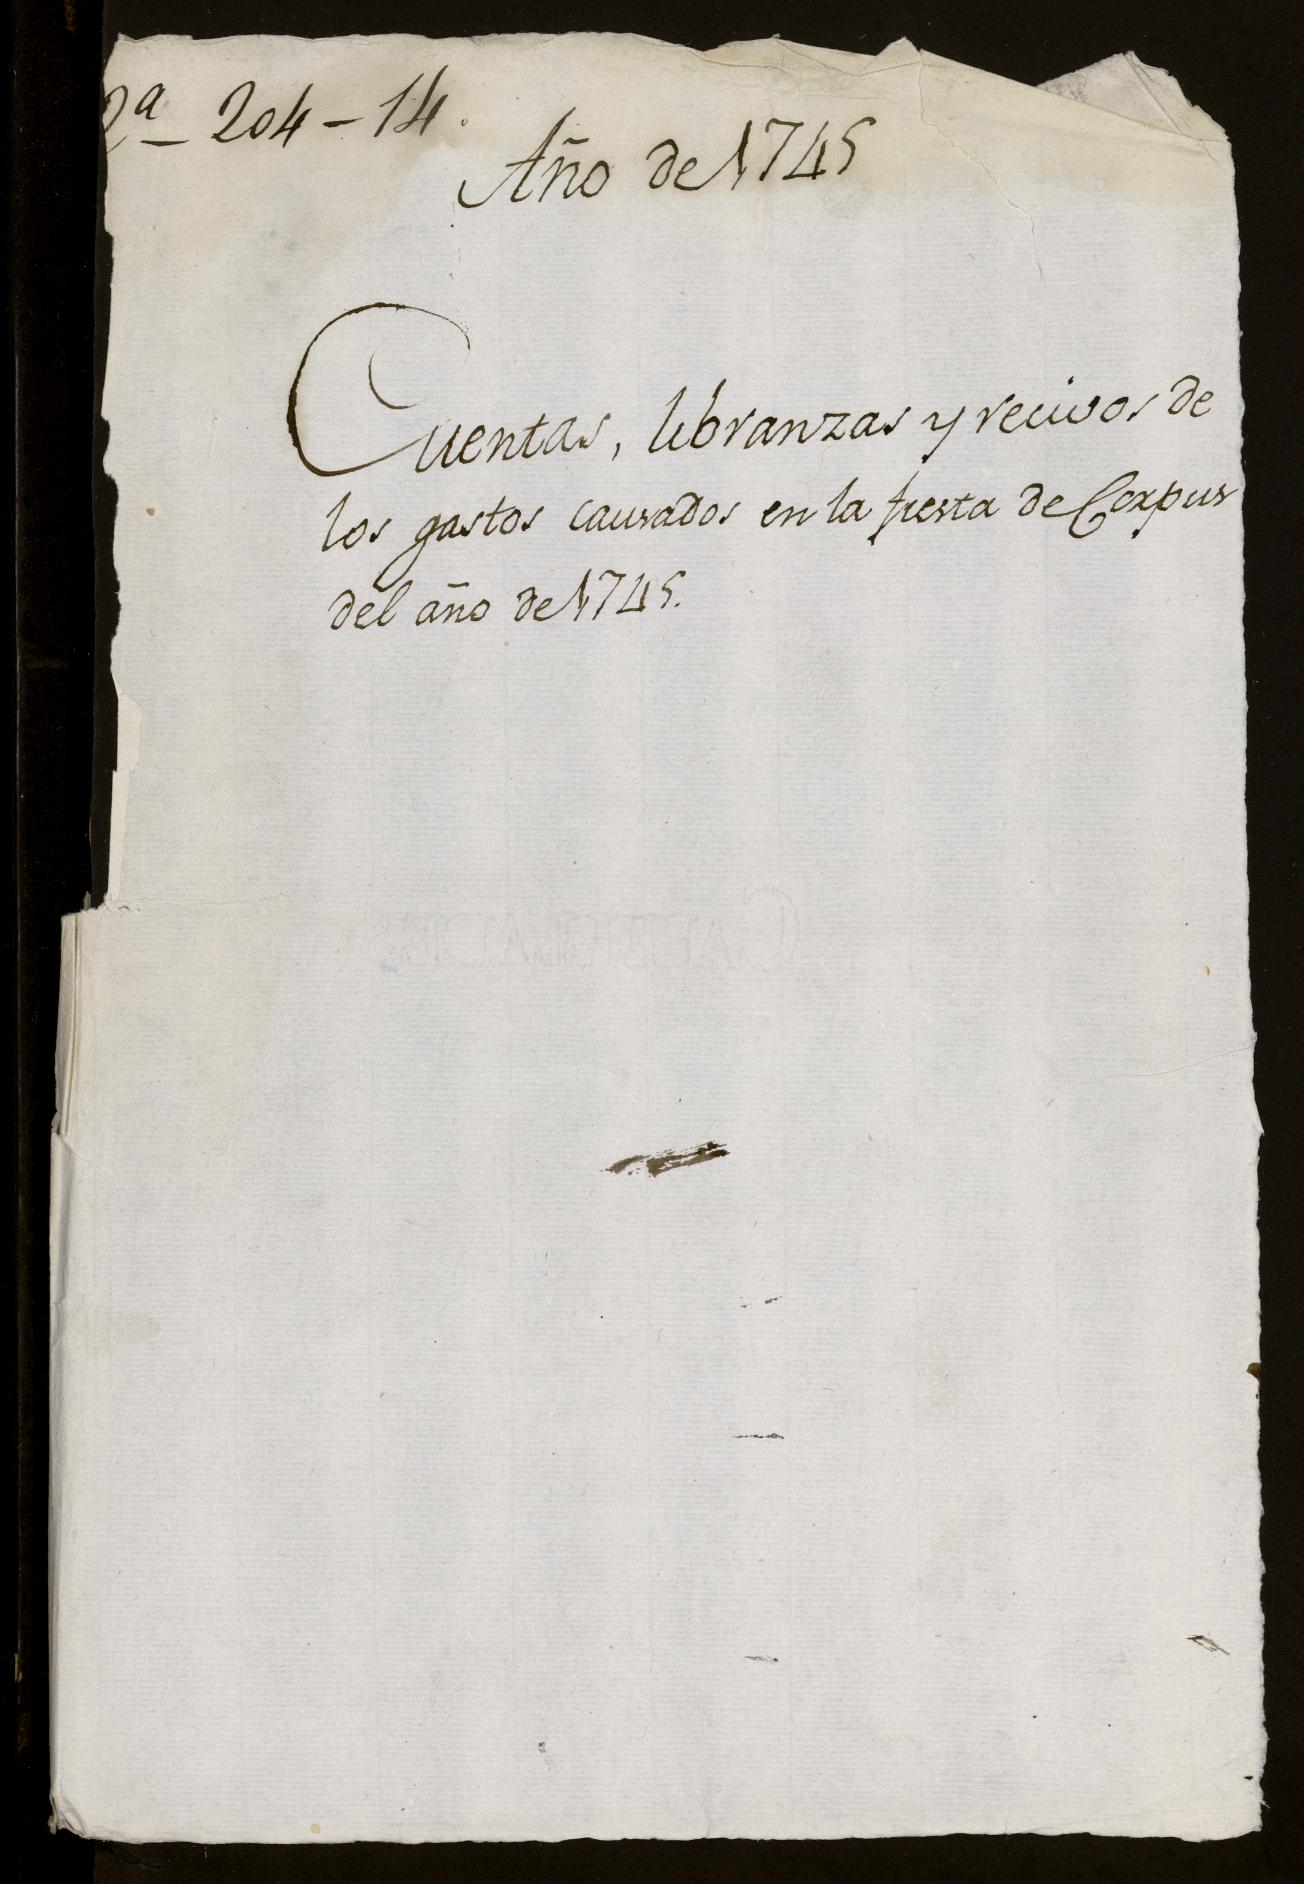 2ª - 204 - 14.
Año de 1745
Cuentas, libranzas y recivos de
los gastos causados en la fiesta de Corpus
del año de 1745.